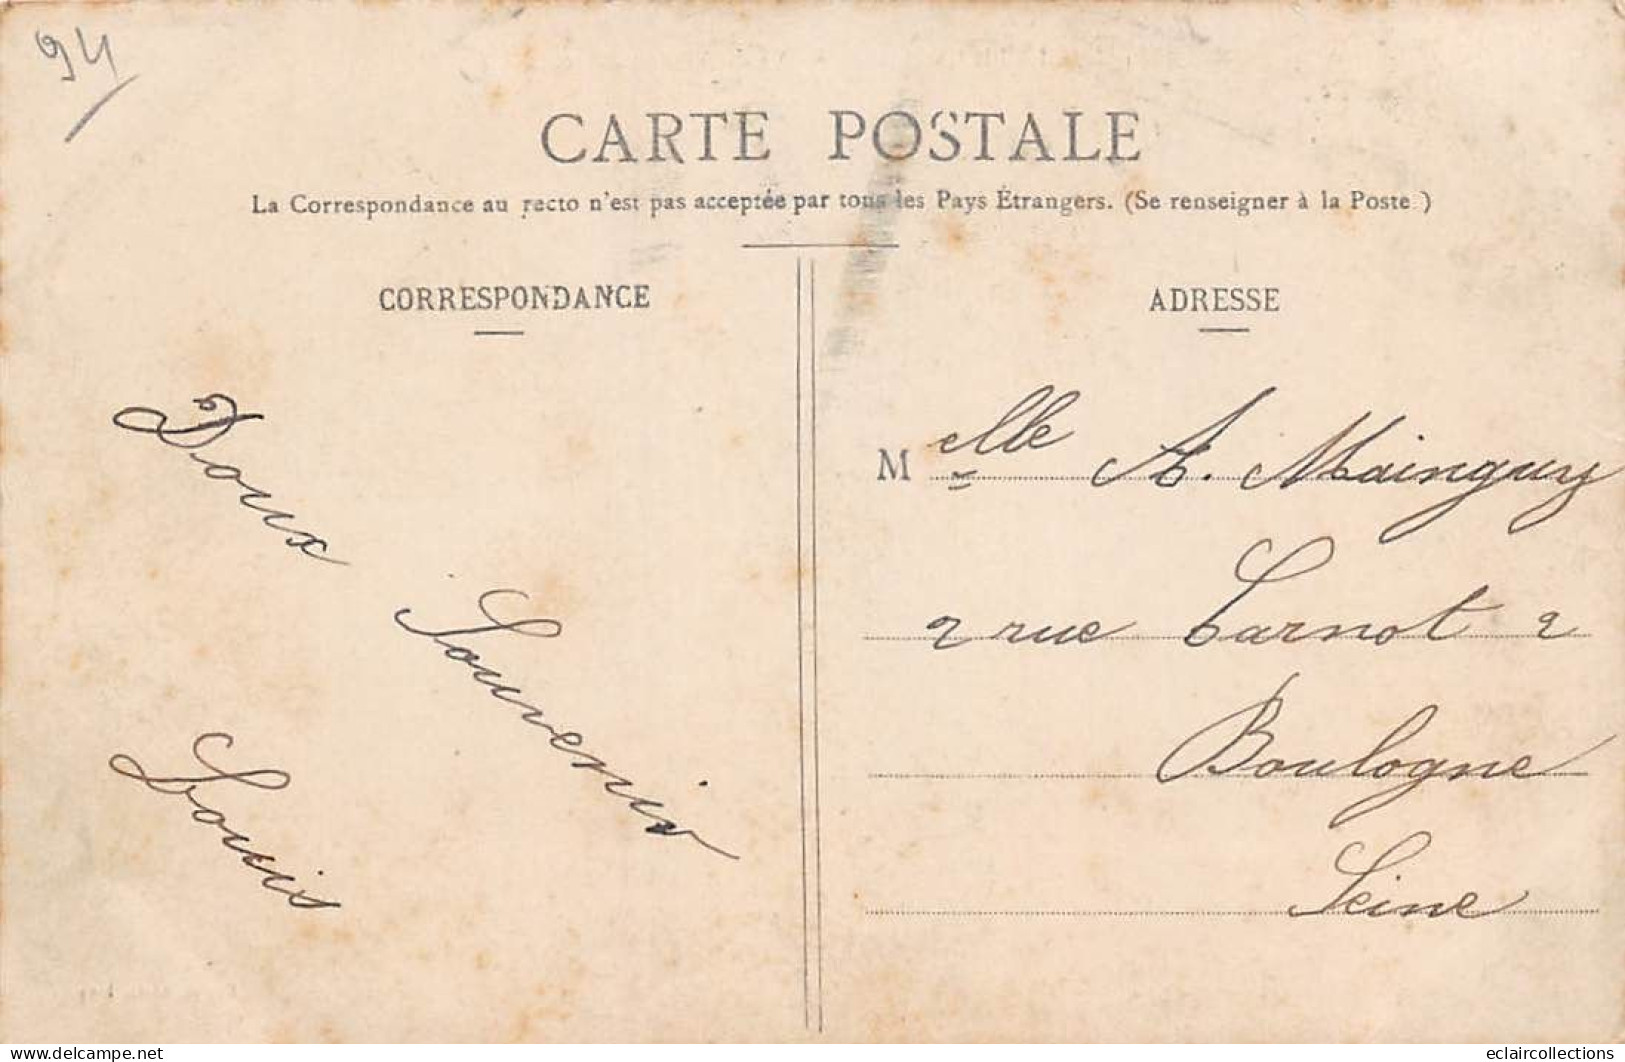 94
CARTE POSTALE
La Correspondance au recto n'est pas acceptée par tous les Pays Étrangers. (Se renseigner à la Poste)
CORRESPONDANCE
Doux
Souvenir
Louis
ADRESSE
Melle A. Mainguy
2 rue Carnot 2
Boulogne
Seine
www.delcampe.net
eclaircollections